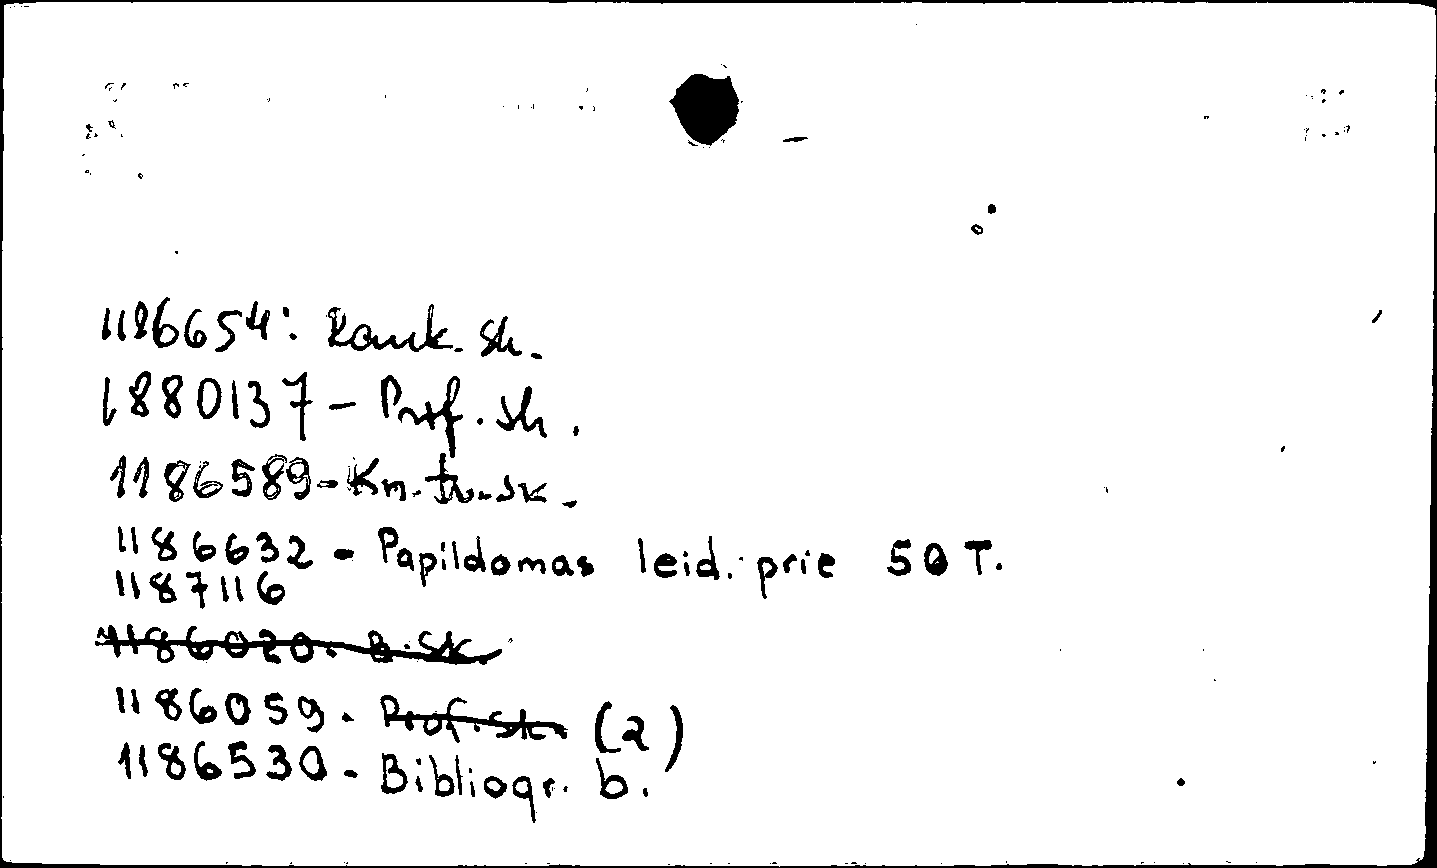 1186654: Rankr. Sk.
1880137 - Prof. sk.
1186589 - Kn. tv. sk.
1186632 - Papildomas leid. prie 50 T.
1187116
1186020. B. Sk.
1186059. Prof. sk. (2)
1186530 - Bibliogr. b.